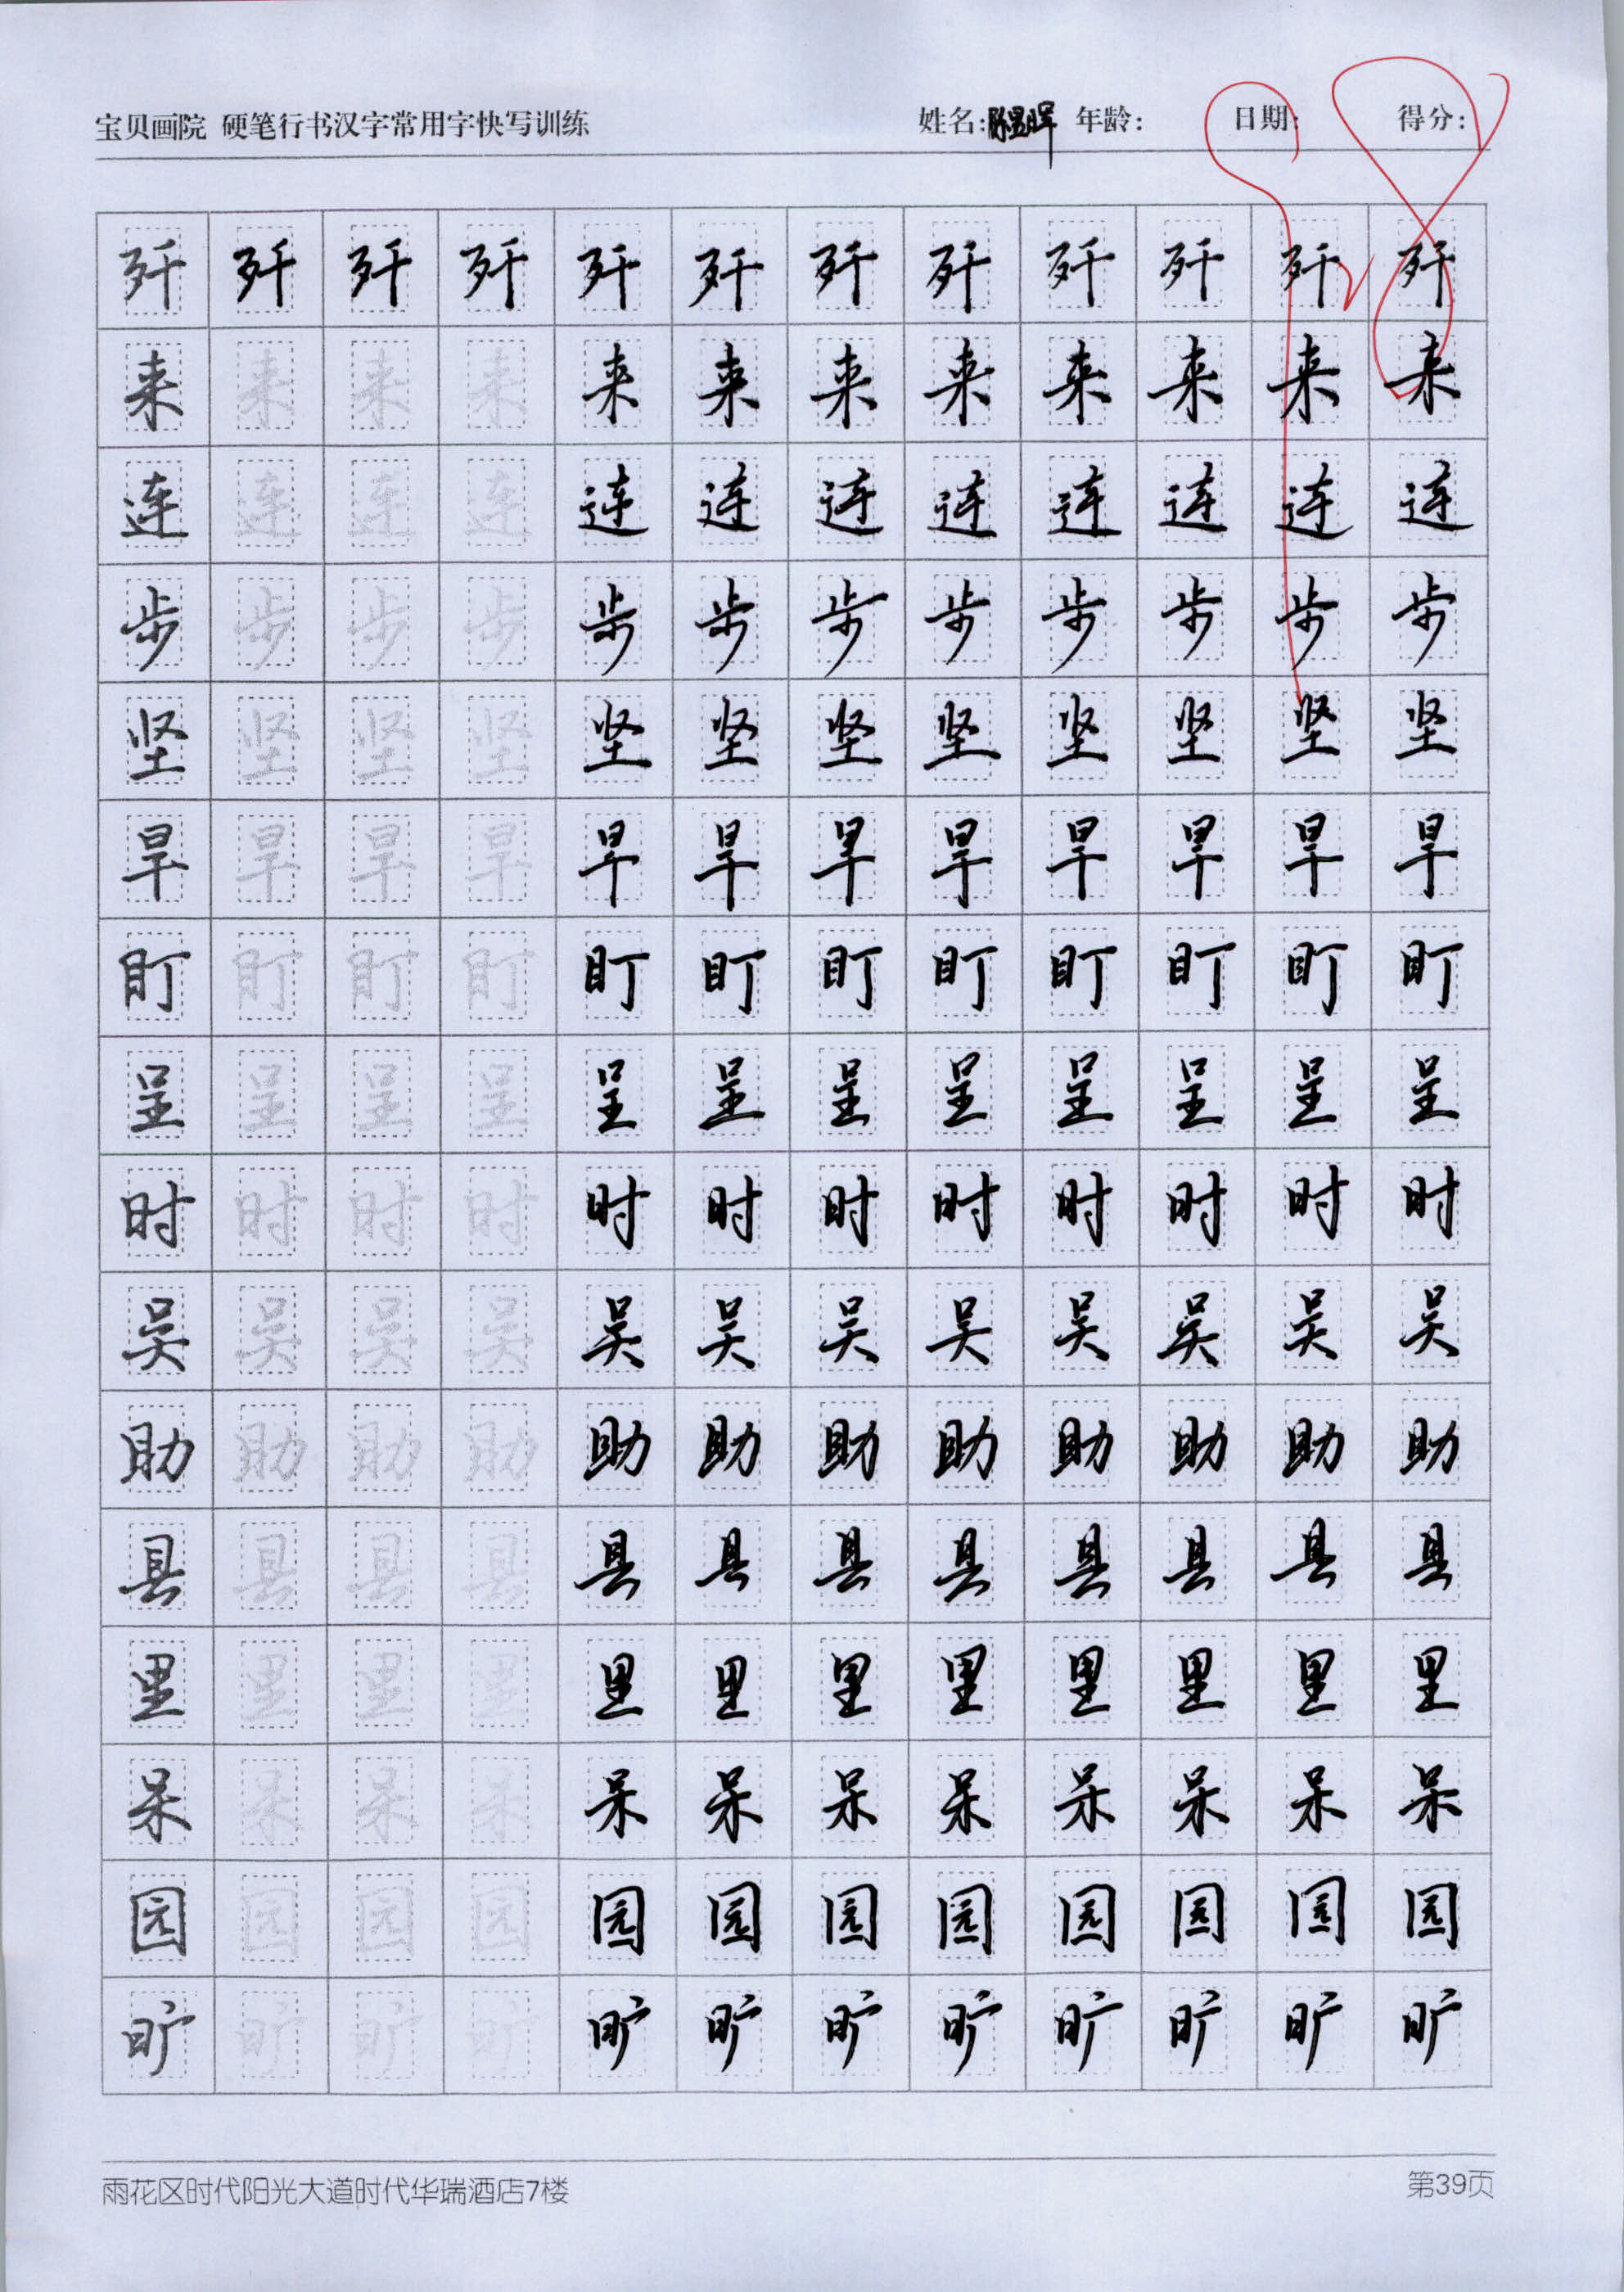 宝贝画院 硬笔行书汉字常用字快写训练 姓名:陈昱晖 年龄: 日期: 得分:
歼 歼 歼 歼 歼 歼 歼 歼 歼 歼 歼 歼
来 来 来 来 来 来 来 来 来 来 来 来
连 连 连 连 连 连 连 连 连 连 连 连
步 步 步 步 步 步 步 步 步 步 步 步
坚 坚 坚 坚 坚 坚 坚 坚 坚 坚 坚 坚
旱 旱 旱 旱 旱 旱 旱 旱 旱 旱 旱 旱
盯 盯 盯 盯 盯 盯 盯 盯 盯 盯 盯 盯
呈 呈 呈 呈 呈 呈 呈 呈 呈 呈 呈 呈
时 时 时 时 时 时 时 时 时 时 时 时
吴 吴 吴 吴 吴 吴 吴 吴 吴 吴 吴 吴
助 助 助 助 助 助 助 助 助 助 助 助
县 县 县 县 县 县 县 县 县 县 县 县
里 里 里 里 里 里 里 里 里 里 里 里
呆 呆 呆 呆 呆 呆 呆 呆 呆 呆 呆 呆
园 园 园 园 园 园 园 园 园 园 园 园
旷 旷 旷 旷 旷 旷 旷 旷 旷 旷 旷 旷
雨花区时代阳光大道时代华瑞酒店7楼 第39页